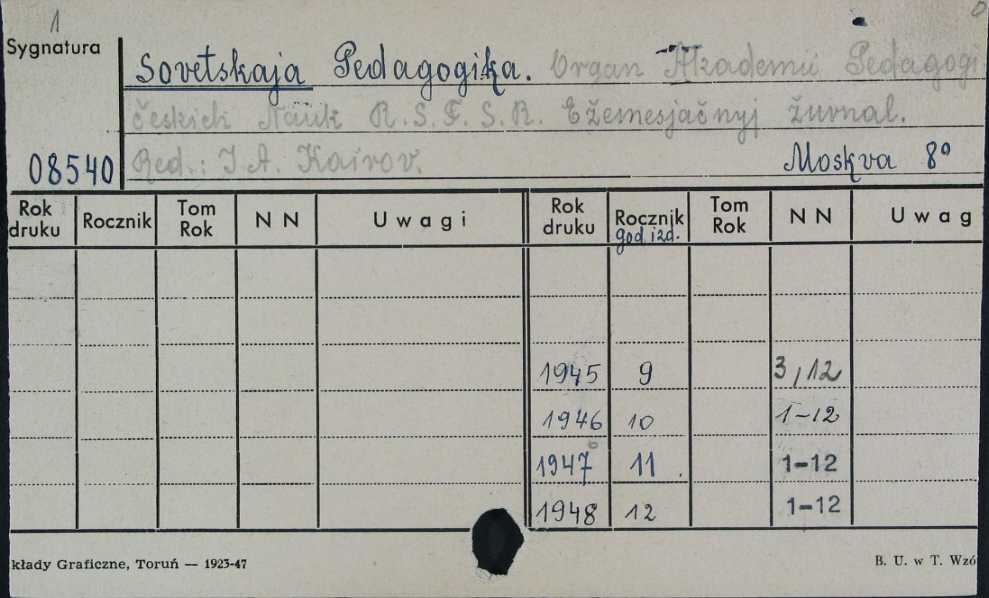 1
Sygnatura
Sovetskaja Pedagogika. Organ Akademii Pedagogi
českich Nauk R.S.F.S.R. Ežemesjačnyj žurnal.
08540 Red.: I A. Kairov. Moskva 8°
Rok druku Rocznik Tom Rok NN Uwagi Rok druku Rocznik god izd. Tom Rok NN Uwag
1945 9 3,12
1946 10 1-12
1947 11 1-12
1948 12 1-12
kłady Graficzne, Toruń — 1923-47 B. U. w T. Wzó